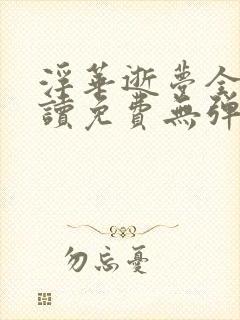 淫華逝夢全
讀免費無彈
勿忘憂